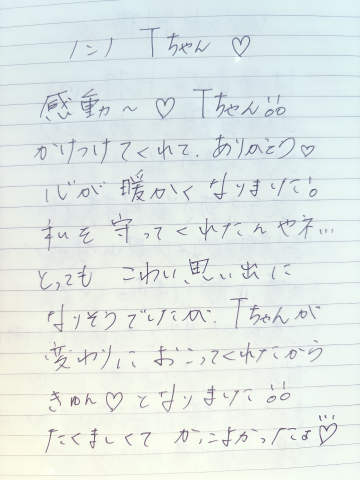 ハンハ Tちゃん ♡
感動〜 ♡ Tちゃん!!
かけつけてくれて、ありがとう♡
心が 暖かく なりました!
私を 守ってくれたんやネ…
とっても こわい 思い出に
なりそうでしたが、Tちゃんが
変わりに おこってくれたから
きゅん♡となりました!!
たくましくて かっこよかったよ♡